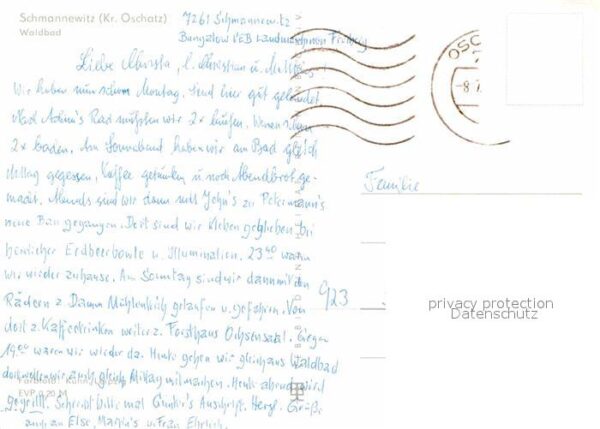 Schmannewitz (Kr. Oschatz)
Waldbad
7261 Schmannewitz
Bungalow VEB Landmaschinen
Liebe Christa, l. Christian u.
Wir haben nun schon Montag. Sind hier gut gelandet
Rad mußten wir 2x Waren schon
2x baden. Am Sonnabend haben wir am Bad gleich
Mittag gegessen, Kaffee getrunken u. noch Abendbrot ge-
macht. Abends sind wir dann mit John's zu Petermann's
neue Bar gegangen. Dort sind wir kleben geblieben bei
herrlicher Erdbeerbowle u. Illumination. 23 40 waren
wir wieder zuhause. Am Sonntag sind wir dann mit den
Rädern z. Damm Mühlenteich gelaufen u. gefahren. Von
dort z. Kaffeetrinken weiter z. Forsthaus Ochsensaal. Gegen
19 00 waren wir wieder da. Heute gehen wir gleich ins Waldbad
dort wollen wir auch gleich Mittag mitmachen. Heute abend wird
gegrillt. Schreibt bitte mal Günter's Anschrift. Herzl. Grüße
auch an Else, Martin's u. Frau Ehrlich.
Familie
OSC
-8.7.
923
EVP 0,20 M
privacy protection
Datenschutz